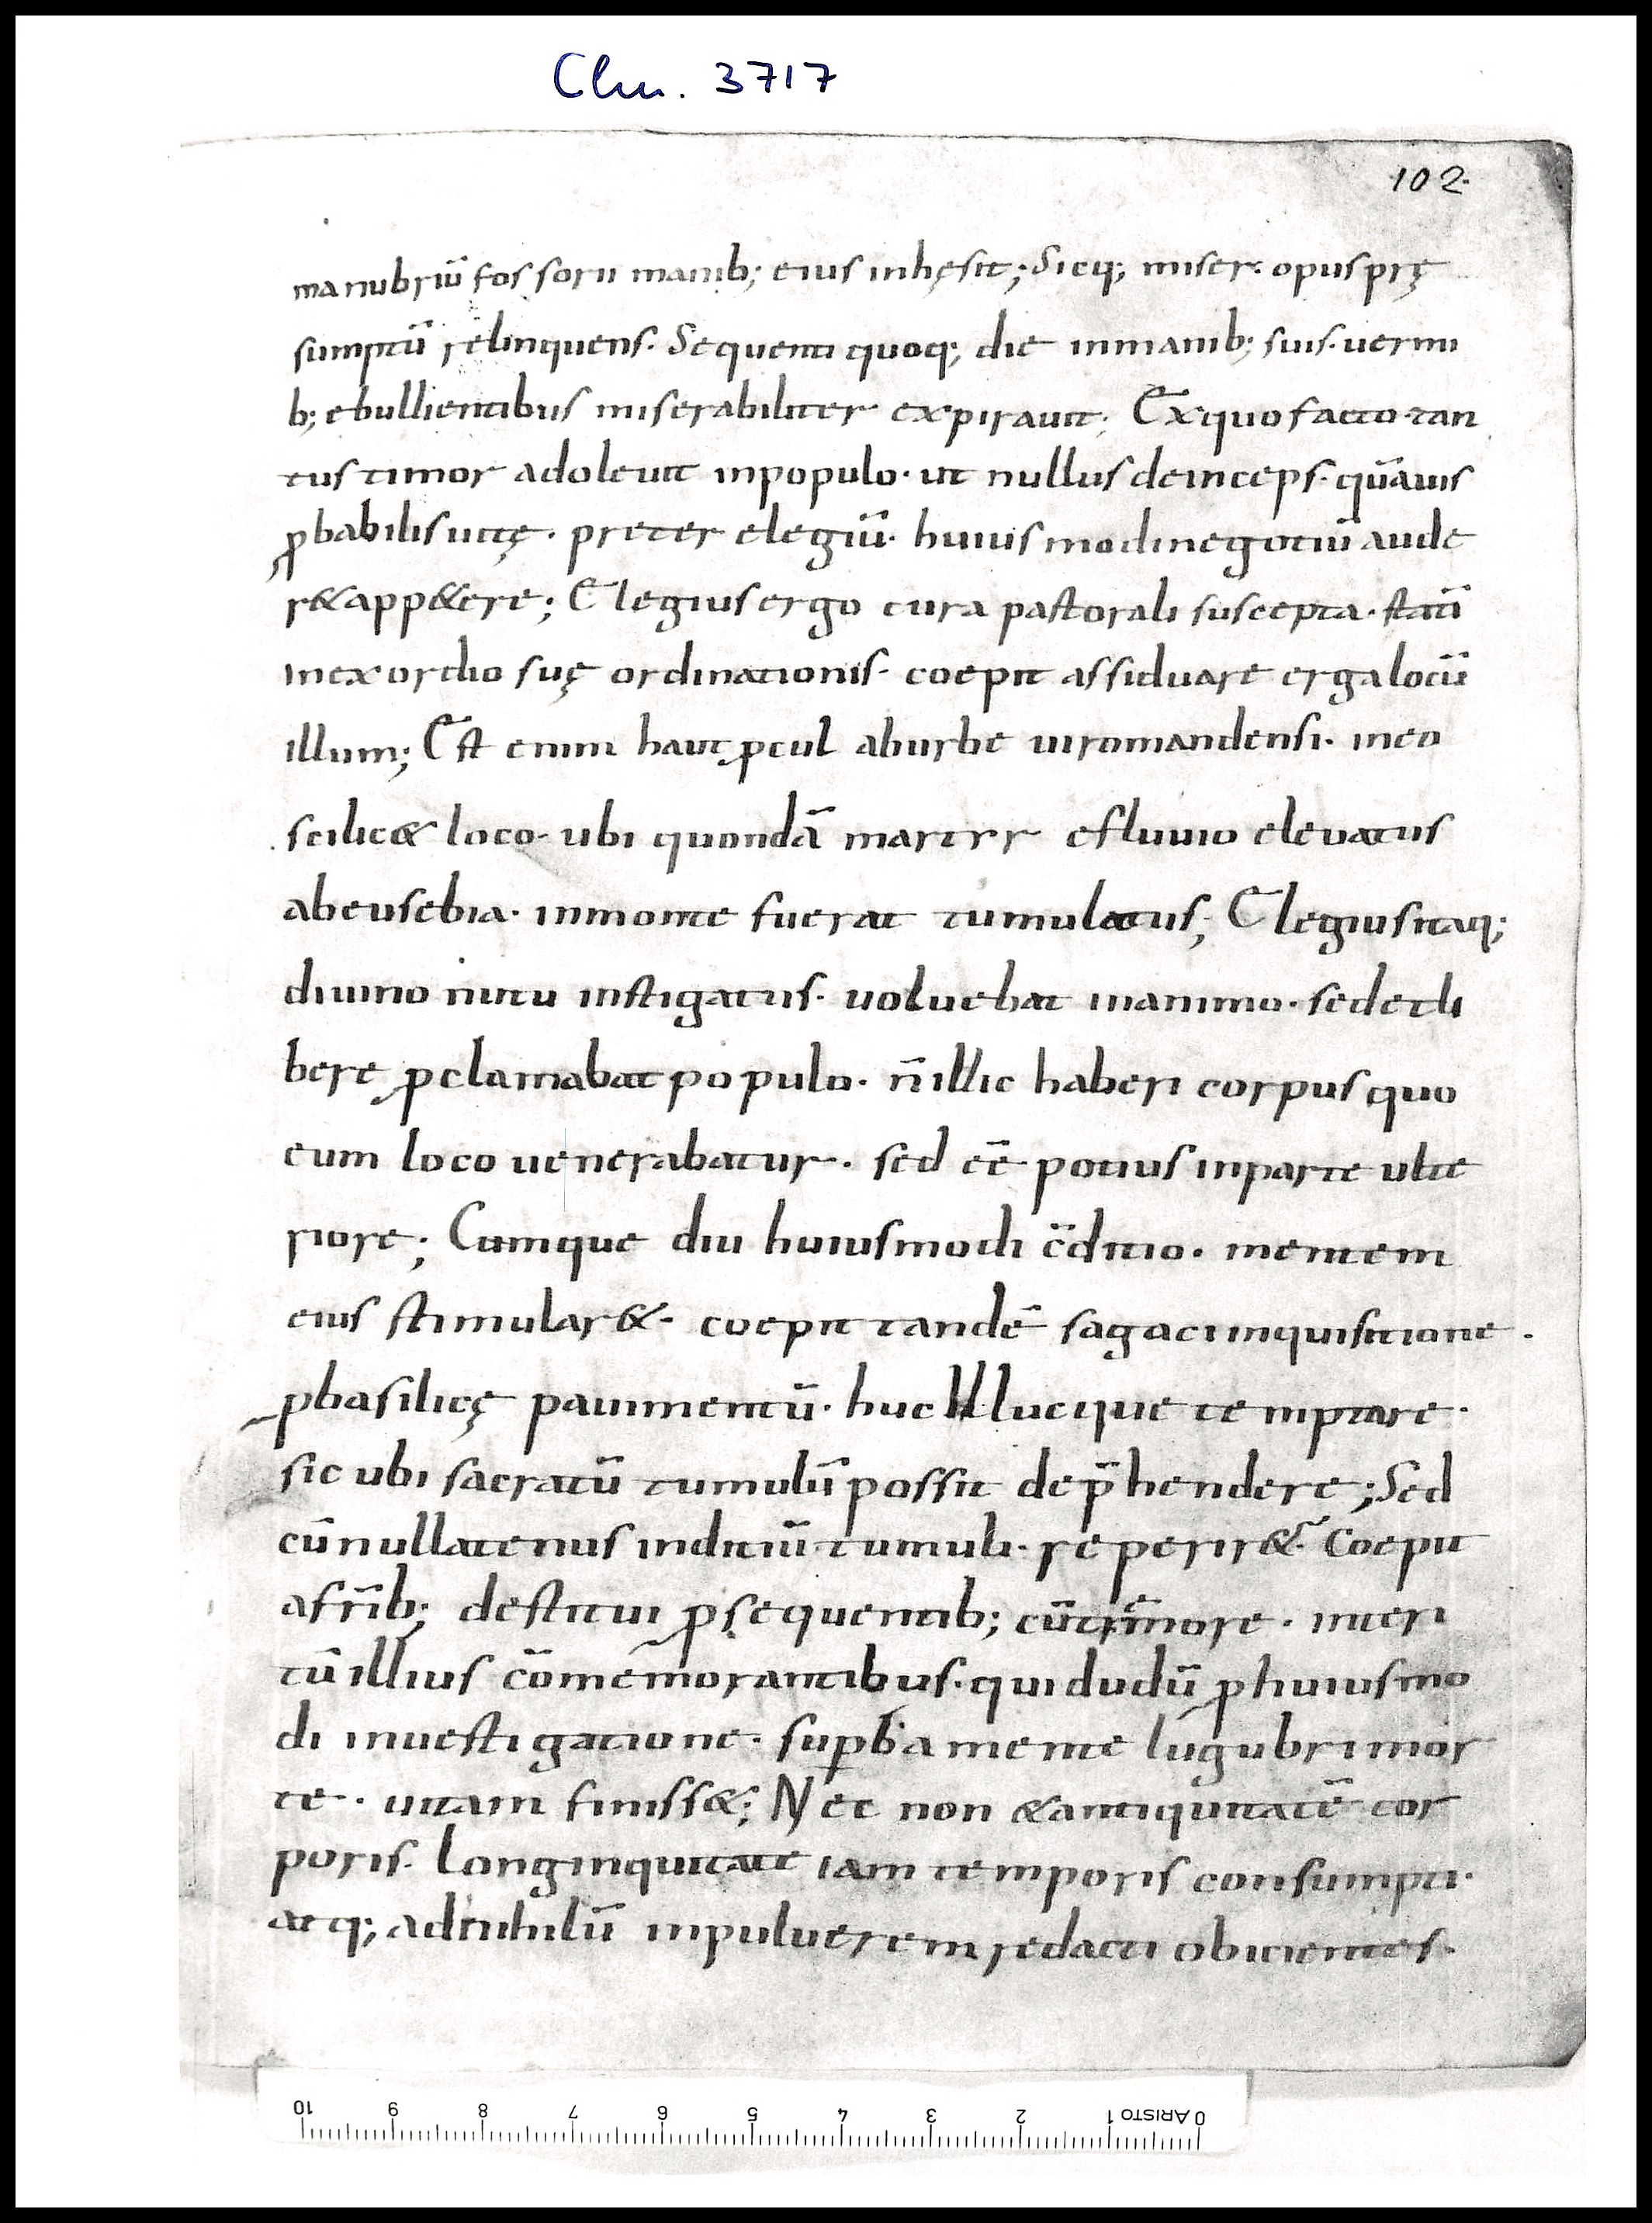 Clm. 3717
102.
manubriū fossorii manib; eius inhęsit; Sicq; miser. opus prę
sumptū relinquens. Sequenti quoq; die inmanib; suis. uermi
b; ebullientibus miserabiliter expirauit; Exquo facto. tan
tus timor adoleuit inpopulo. ut nullus deinceps. quāuis
ꝓbabilis uitę. preter elegiū. huiuismodi negotiū aude
r& app&ere; Elegius ergo cura pastorali suscepta. statī
inexordio suę ordinationis. coepit assiduare erga locū
illum; Est enim haut ꝓcul aburbe uiromandensi. ineo
scilic& loco. ubi quondā martyr efluuio eleuatus
abeusebia. inmonte fuerat tumulatus; Elegius itaq;
diuino nutu instigatus. uoluebat inanimo. sedetli
bere ꝓclamabat populo. n̄ illic haberi corpus quo
eum loco uenerabatur. sed eē potius inparte ulte
riore; Cumque diu huiusmodi c̄ditio. mentem
eius stimular&. coepit tandē sagaci inquisitione.
ꝑbasilicę pauimentū. huc illucque temptare.
sic ubi sacratū tumulū possit dep̄hendere; Sed
cū nullatenus inditiū tumuli. reperir&. Coepit
afrīb; destitui ꝓsequentib; cūtrēmore. interi
tū illius cōmemorantibus. qui dudū ꝓ huiusmo
di inuestigatione. suꝑba mente lugubri mor
te. uitam finiss&; Nec non & antiquitatē cor
poris. longinquitate iam temporis consumpti.
atq; adnihilū inpuluerem redacti obicientes.
10 9 8 7 6 5 4 3 2 1 ARISTO 0